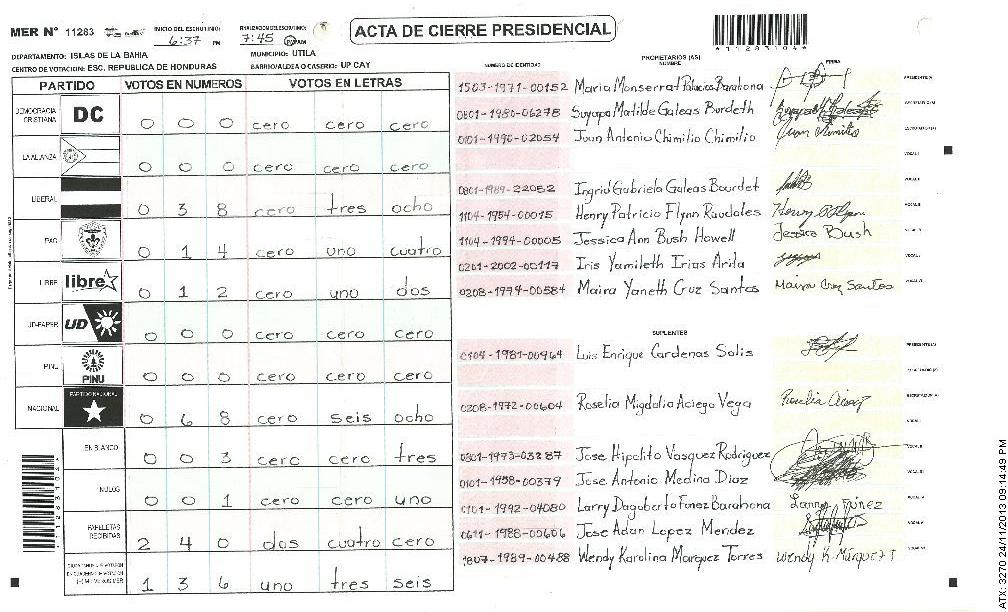 MER Nº 11283 INICIO DEL ESCRUTINIO: 6:37 PM 7:45 ACTA DE CIERRE PRESIDENCIAL
*11283104*
DEPARTAMENTO: ISLAS DE LA BAHIA MUNICIPIO: UTILA
CENTRO DE VOTACION: ESC. REPUBLICA DE HONDURAS BARRIO/ALDEA O CASERIO: UP CAY
PARTIDO VOTOS EN NUMEROS VOTOS EN LETRAS
DEMOCRACIA CRISTIANA DC 0 0 0 cero cero cero
LA ALIANZA 0 0 0 cero cero cero
LIBERAL 0 3 8 cero tres ocho
PAC 0 1 4 cero uno cuatro
LIBRE libre 0 1 2 cero uno dos
UD-FAPER UD 0 0 0 cero cero cero
PINU PINU 0 0 0 cero cero cero
NACIONAL PARTIDO NACIONAL 0 6 8 cero seis ocho
EN BLANCO 0 0 3 cero cero tres
NULOS 0 0 1 cero cero uno
PAPELETAS RECIBIDAS 2 4 0 dos cuatro cero
1 3 6 uno tres seis
NUMERO DE IDENTIDAD PROPIETARIOS (AS) NOMBRE FIRMA
1503-1971-00152 Maria Monserrat Palacios Barahona PRESIDENTE/A
0801-1980-06278 Suyapa Matilde Galeas Burdeth SECRETARIO/A
0101-1990-02054 Juan Antonio Chimilio Chimilio Juan Chimilio
0801-1989-22052 Ingrid Gabriela Galeas Bourdet
1104-1954-00015 Henry Patricio Flynn Raudales
1104-1994-00005 Jessica Ann Bush Howell Jessica Bush
0201-2002-00117 Iris Yamileth Irias Arita
0208-1974-00584 Maira Yaneth Cruz Santos Maira Cruz Santos
SUPLENTES
0104-1981-00964 Luis Enrique Cardenas Solis PRESIDENTE(A)
0208-1972-00604 Roselia Migdalia Aciego Vega
0801-1973-03287 Jose Hipolito Vasquez Rodriguez
0101-1958-00379 Jose Antonio Medina Diaz
0101-1992-04080 Larry Dagoberto Funez Barahona Larry Funez
0611-1988-00606 Jose Adan Lopez Mendez
1807-1989-00488 Wendy Karolina Marquez Torres Wendy K. Márquez T
ATX: 3270 24/11/2013 09:14:49 PM